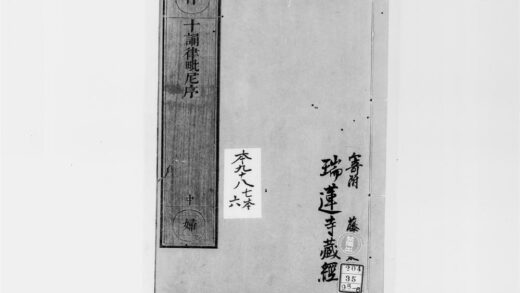 十誦律毗尼序
十
婦
本九十八七本
六
寄附 藤
瑞蓮寺藏經
204
35